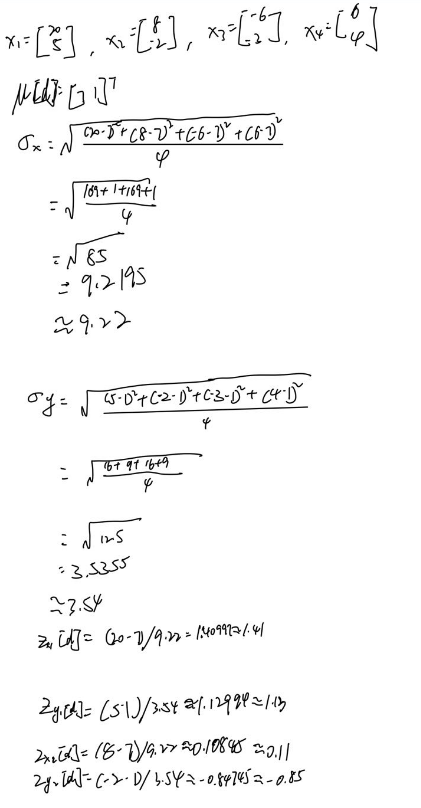 x₁=[20 5], x₂=[8 -2], x₃=[-6 -2], x₄=[6 4]
μ[d]=[7 1]ᵀ
σx = √((20-7)²+(8-7)²+(-6-7)²+(6-7)²)/4
= √(169+1+169+1)/4
= √85
= 9.2195
≈ 9.22
σy = √((5-1)²+(-2-1)²+(-3-1)²+(4-1)²)/4
= √(16+9+16+9)/4
= √12.5
= 3.5355
≈ 3.54
Zx₁[d] = (20-7)/9.22 = 1.40997 ≈ 1.41
Zy₁[d] = (5-1)/3.54 ≈ 1.12994 ≈ 1.13
Zx₂[d] = (8-7)/9.22 ≈ 0.10845 ≈ 0.11
Zy₂[d] = (-2-1)/3.54 ≈ -0.84745 ≈ -0.85